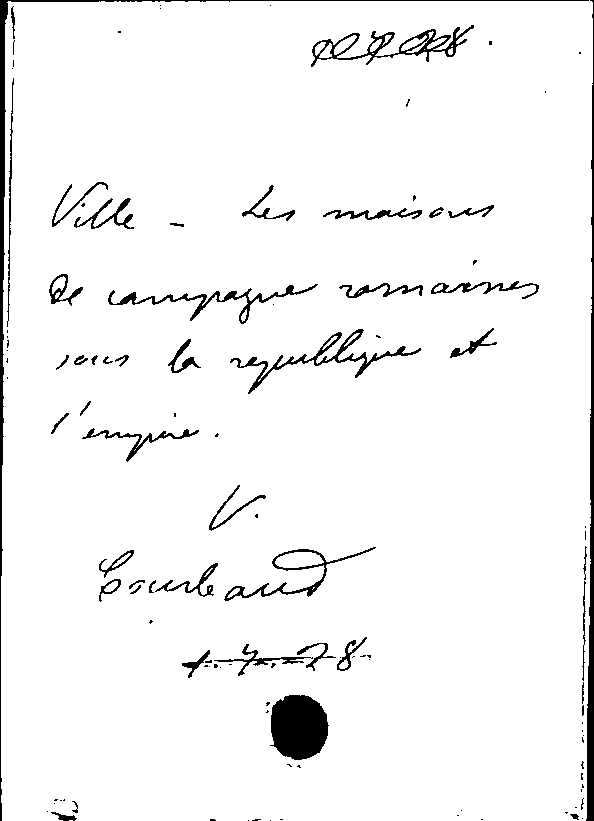 Ville - Les maisons
de campagne romaines
sous la republique et
l'empire.
V.
Courbaud
1.7.28